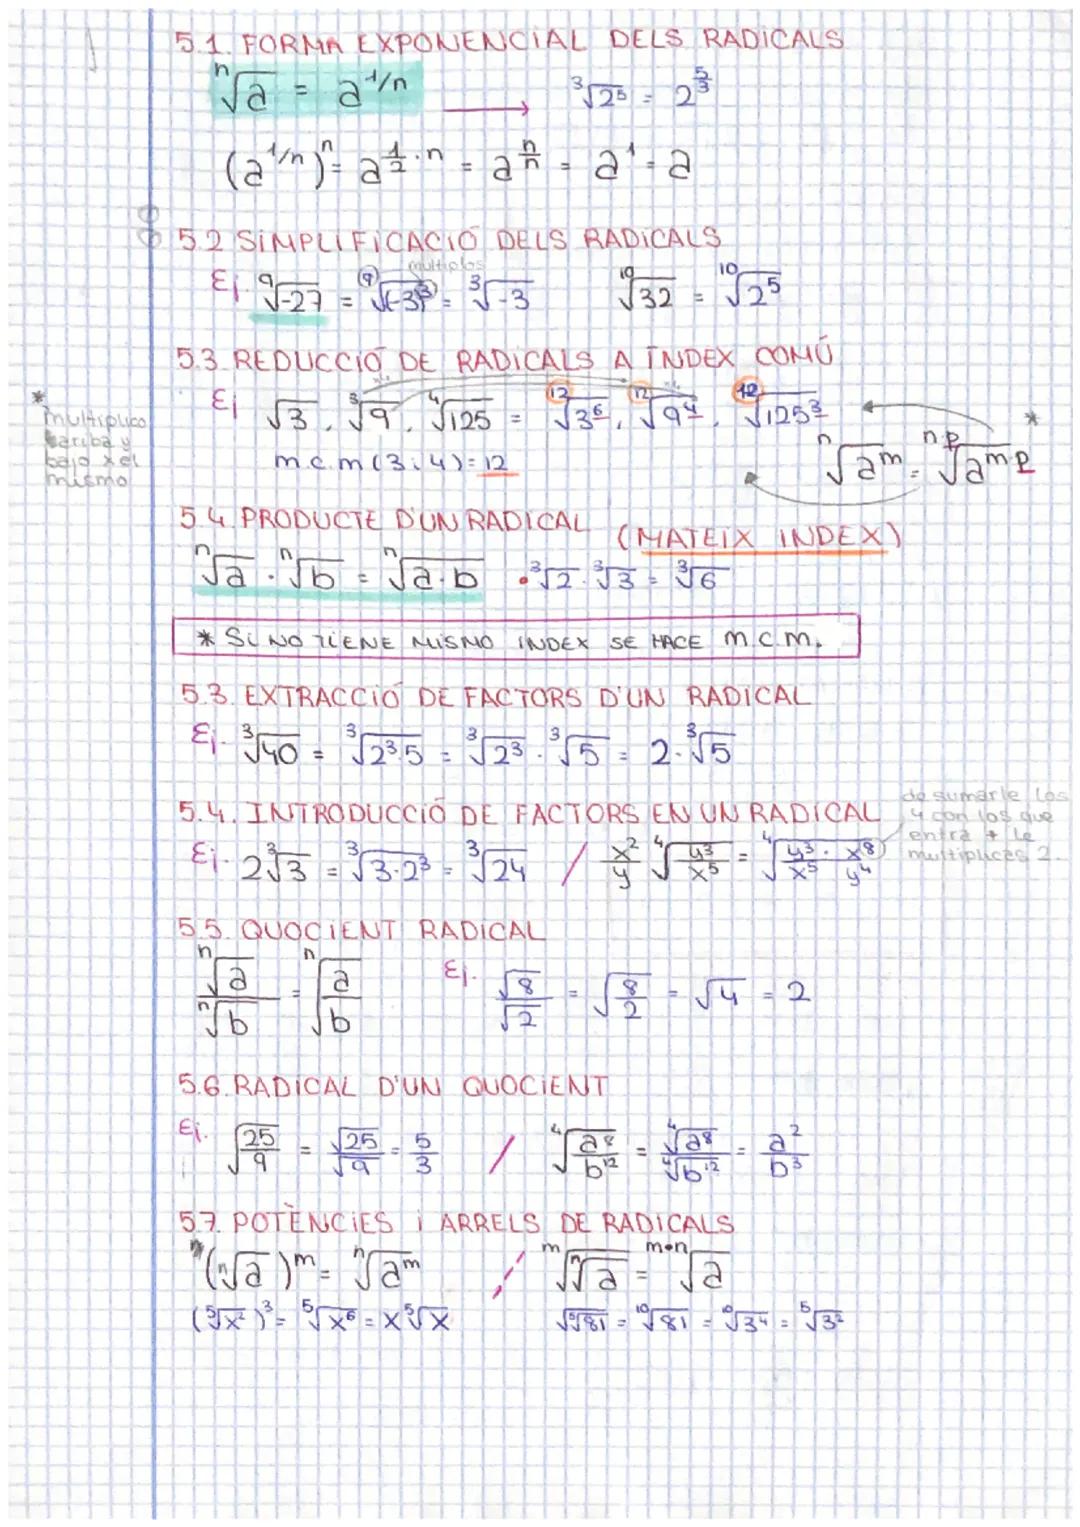 5.1. FORMA EXPONENCIAL DELS RADICALS
ⁿ√a = a^1/n → ³√2⁵ = 2^5/3
(a^1/n)ⁿ = a^1/2·n = a^n/n = a¹ = a
5.2 SIMPLIFICACIÓ DELS RADICALS
multiplos
Ej. ⁹√-27 = ⁹√(-3)³ = ³√-3 ¹⁰√32 = ¹⁰√2⁵
5.3 REDUCCIÓ DE RADICALS A ÍNDEX COMÚ
Ej √3, ³√9, ⁴√125 = ¹²√3⁶, ¹²√9⁴, ¹²√125³
* multiplico
bajo xel
mismo
m.c.m (3i4) = 12
ⁿ√a^m = ^n·p√a^m·p *
5.4. PRODUCTE D'UN RADICAL (MATEIX INDEX)
ⁿ√a · ⁿ√b = ⁿ√a·b • ³√2 · ³√3 = ³√6
* SI NO TIENE MISMO INDEX SE HACE m.c.m.
5.3. EXTRACCIÓ DE FACTORS D'UN RADICAL
Ej. ³√40 = ³√2³·5 = ³√2³ · ³√5 = 2·³√5
5.4. INTRODUCCIÓ DE FACTORS EN UN RADICAL
de sumarle los
4 con los que
entra + le
multiplicas 2.
Ej. 2³√3 = ³√3·2³ = ³√24 / x²/y ⁴√y³/x⁵ = ⁴√y³/x⁵ · x⁸/y⁴
5.5. QUOCIENT RADICAL
ⁿ√a/ⁿ√b = ⁿ√a/b Ej. √8/√2 = √8/2 = √4 = 2
5.6. RADICAL D'UN QUOCIENT
Ej. √25/9 = √25/√9 = 5/3 / ⁴√a⁸/b¹² = ⁴√a⁸/⁴√b¹² = a²/b³
5.7. POTÈNCIES i ARRELS DE RADICALS
(ⁿ√a)^m = ⁿ√a^m / ^m√ⁿ√a = ^m·n√a
(⁵√x²)³ = ⁵√x⁶ = x⁵√x √⁵√81 = ¹⁰√81 = ¹⁰√3⁴ = ⁵√3²